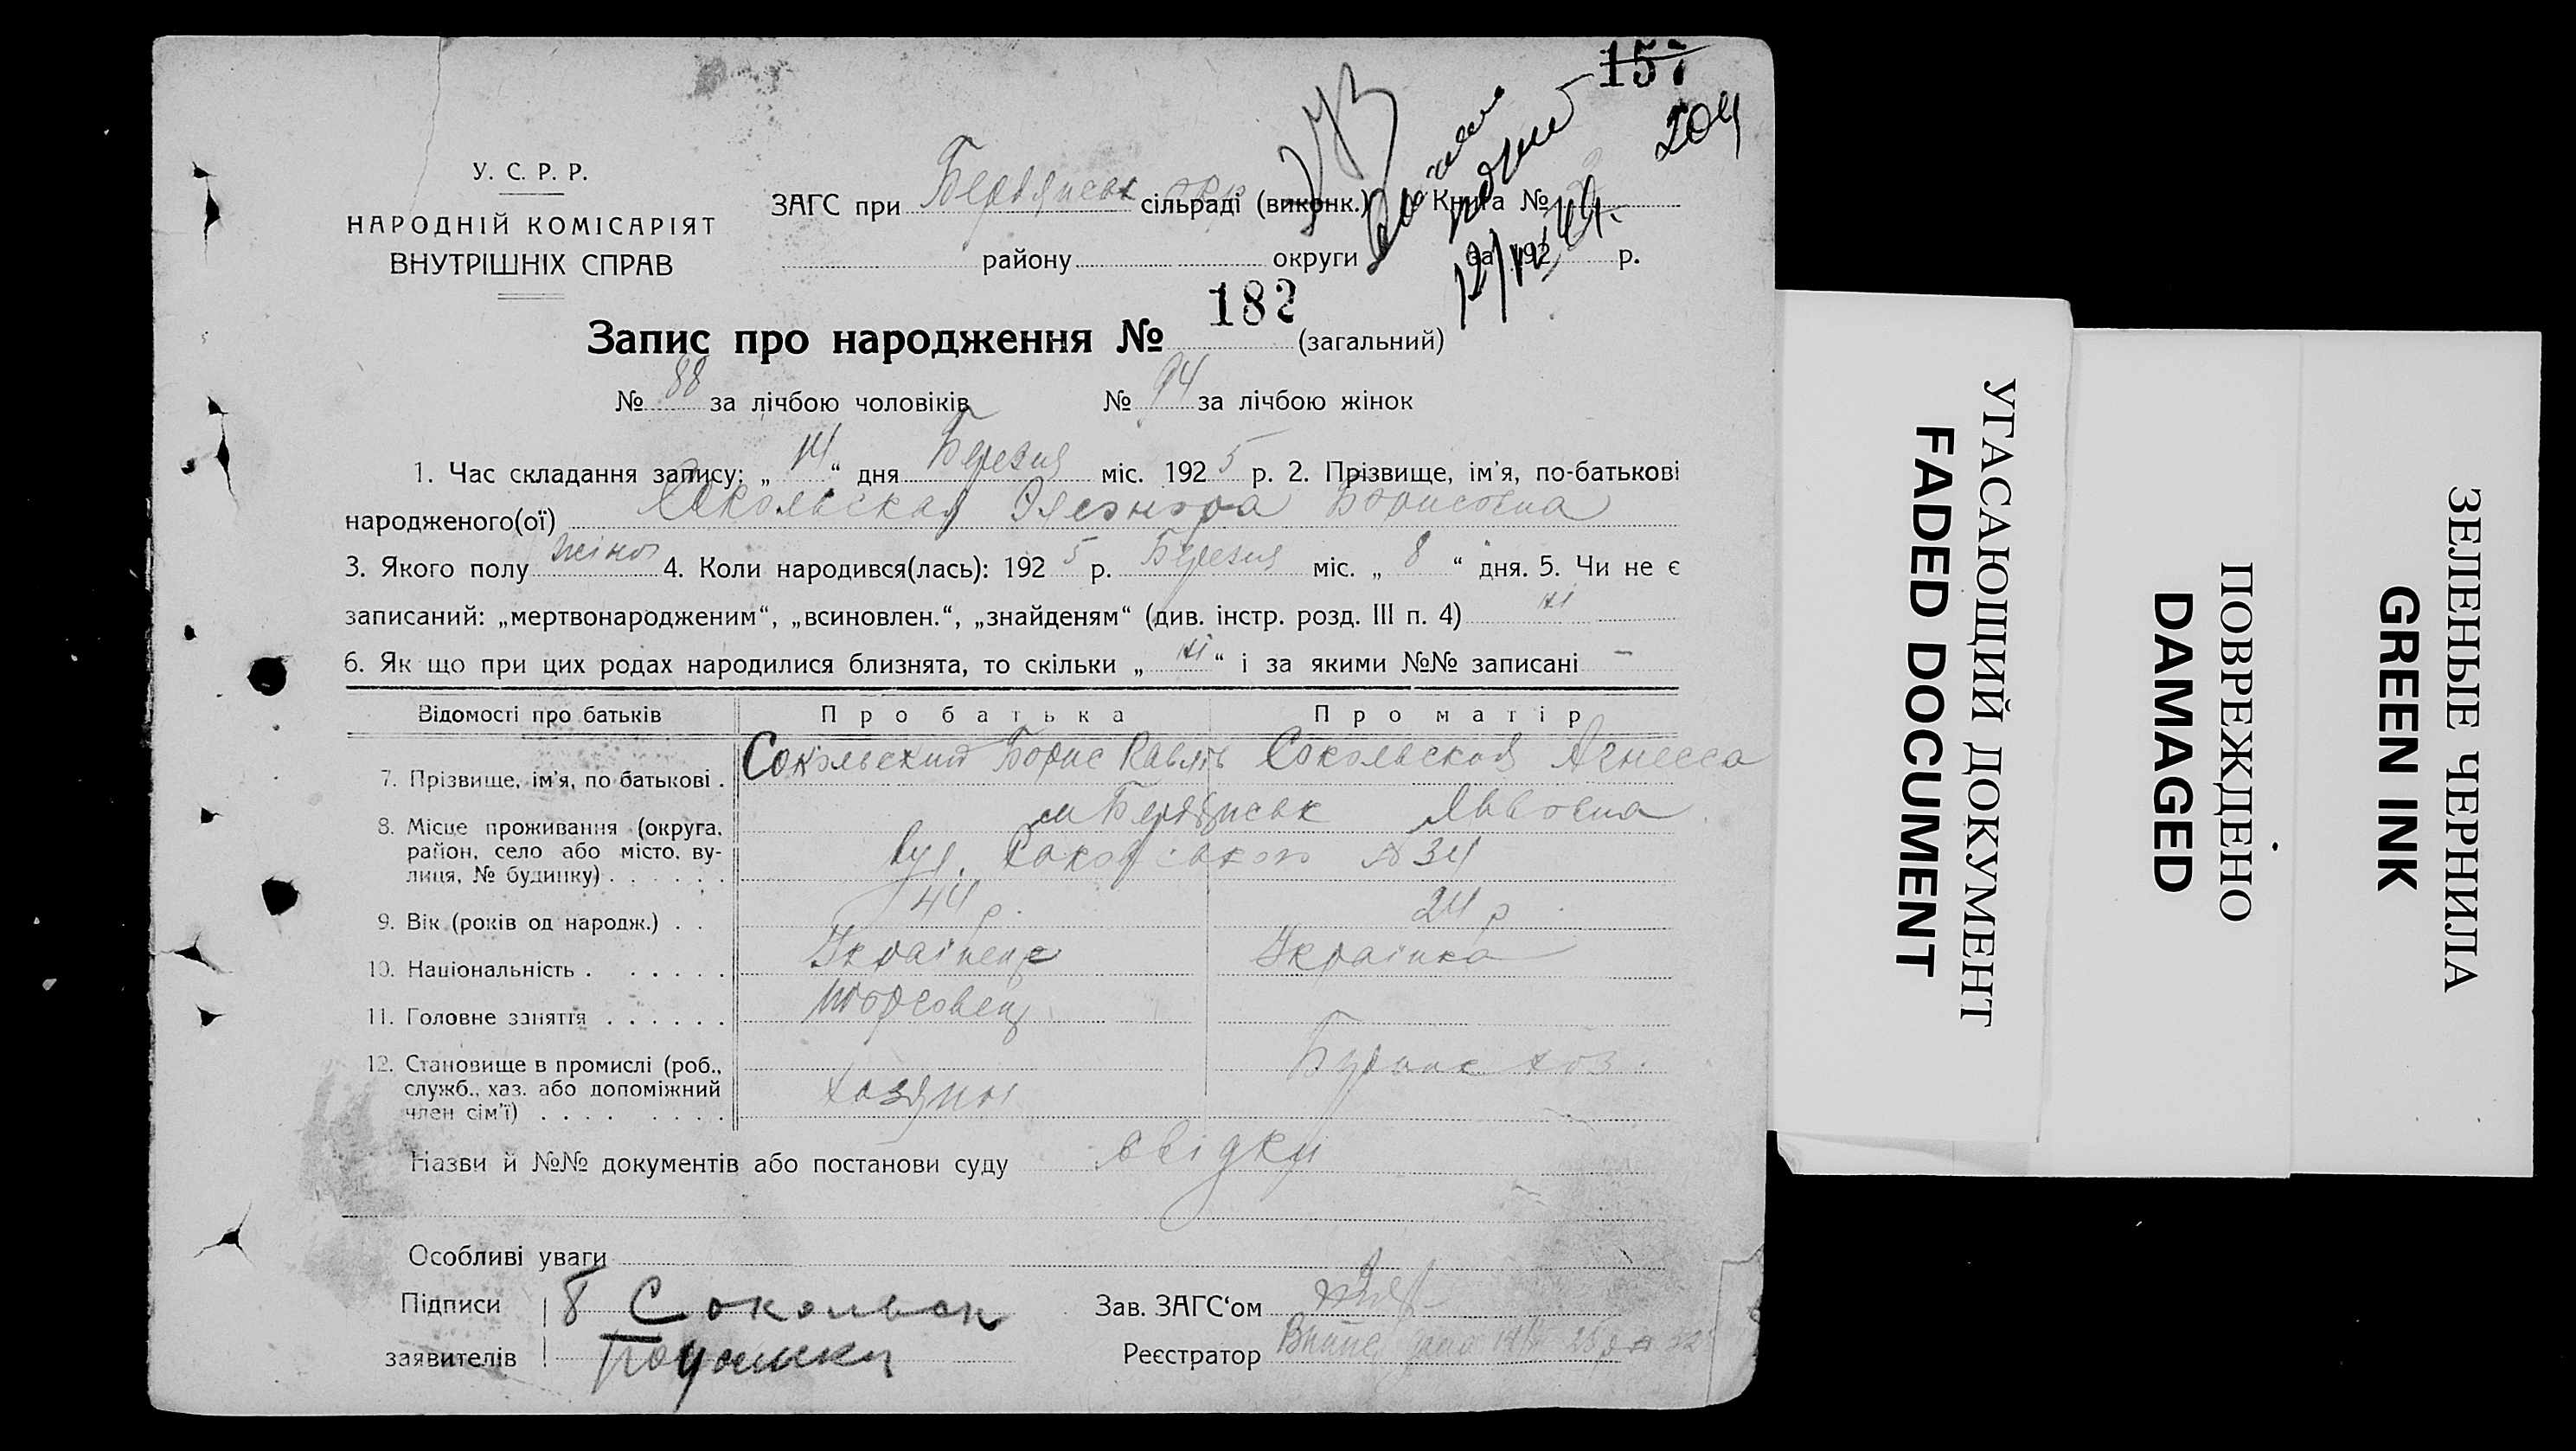 157
204
У. С. Р. Р.
НАРОДНІЙ КОМІСАРІЯТ
ВНУТРІШНІХ СПРАВ
ЗАГС при Бердянськ сільраді (виконк.) Книга №
району округи за 192 р.
Запис про народження № 182 (загальний)
№ 88 за лічбою чоловіків № 94 за лічбою жінок
1. Час складання запису: „14“ дня Березня міс. 1925 р. 2. Прізвище, ім'я, по-батькові
народженого(ої) Сокольская Элеонора Борисовна
3. Якого полу жіноч 4. Коли народився(лась): 1925 р. Березня міс. „8“ дня. 5. Чи не є
записаний: „мертвонародженим“, „всиновлен.“, „знайденям“ (див. інстр. розд. III п. 4) ні
6. Як що при цих родах народилися близнята, то скільки „ні“ і за якими №№ записані —
Відомості про батьків Про батька Про матір
7. Прізвище, ім'я, по батькові . Сокольский Борис Сокольская Агнесса
Львовна
8. Місце проживання (округа, м Бердянськ
район, село або місто, ву- вул. № 34
лиця, № будинку) . . . . . .
9. Вік (років од народж.) . . 44 р. 24 р
10. Національність . . . . . . Українец Українка
11. Головне заняття . . . . . . торговец
12. Становище в промислі (роб.,
служб., хаз. або допоміжний хазяин
член сім'ї) . . . . . . . .
Назви й №№ документів або постанови суду
Особливі уваги
Підписи Б Сокольск
заявителів
Зав. ЗАГС‘ом
Реєстратор
УГАСАЮЩИЙ ДОКУМЕНТ
FADED DOCUMENT
ПОВРЕЖДЕНО
DAMAGED
ЗЕЛЕНЫЕ ЧЕРНИЛА
GREEN INK